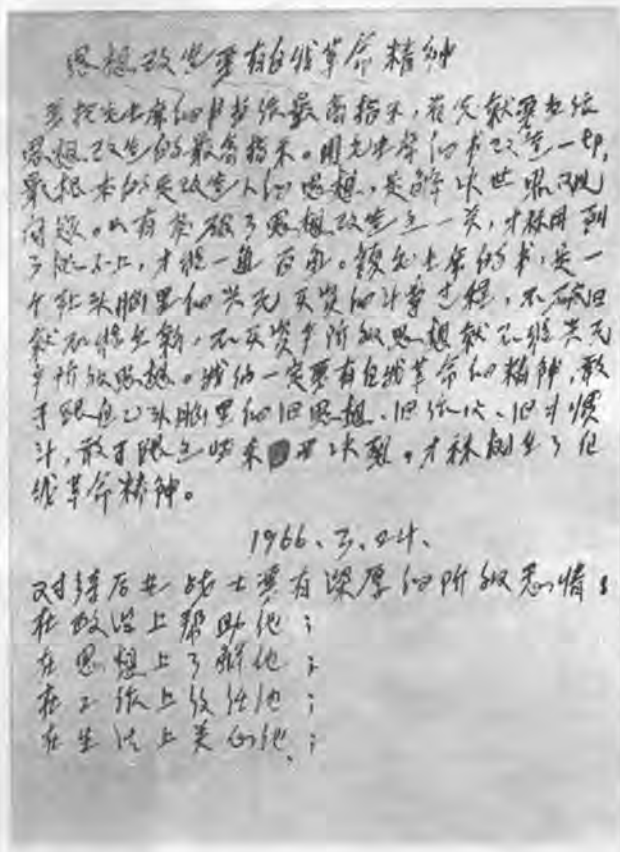 思想改造要有自我革命精神
要把毛主席的书当作最高指示,首先就要当作
思想改造的最高指示。用毛主席的书改造一切,
最根本的是改造人的思想,是解决世界观
问题。只有突破了思想改造这一关,才称用到
了做上,才能一通百通。读毛主席的书,是一
个在头脑里的兴无灭资的斗争过程,不破旧
就不能立新,不灭资产阶级思想就不能兴无
产阶级思想。我们一定要有自我革命的精神,敢
于跟自己头脑里的旧思想、旧作风、旧习惯
斗,敢于跟这些东决裂。才称树立了自
我革命精神。
1966、3、24、
对待后进战士要有深厚的阶级感情:
在政治上帮助他;
在思想上了解他;
在工作上信任他;
在生活上关心他;